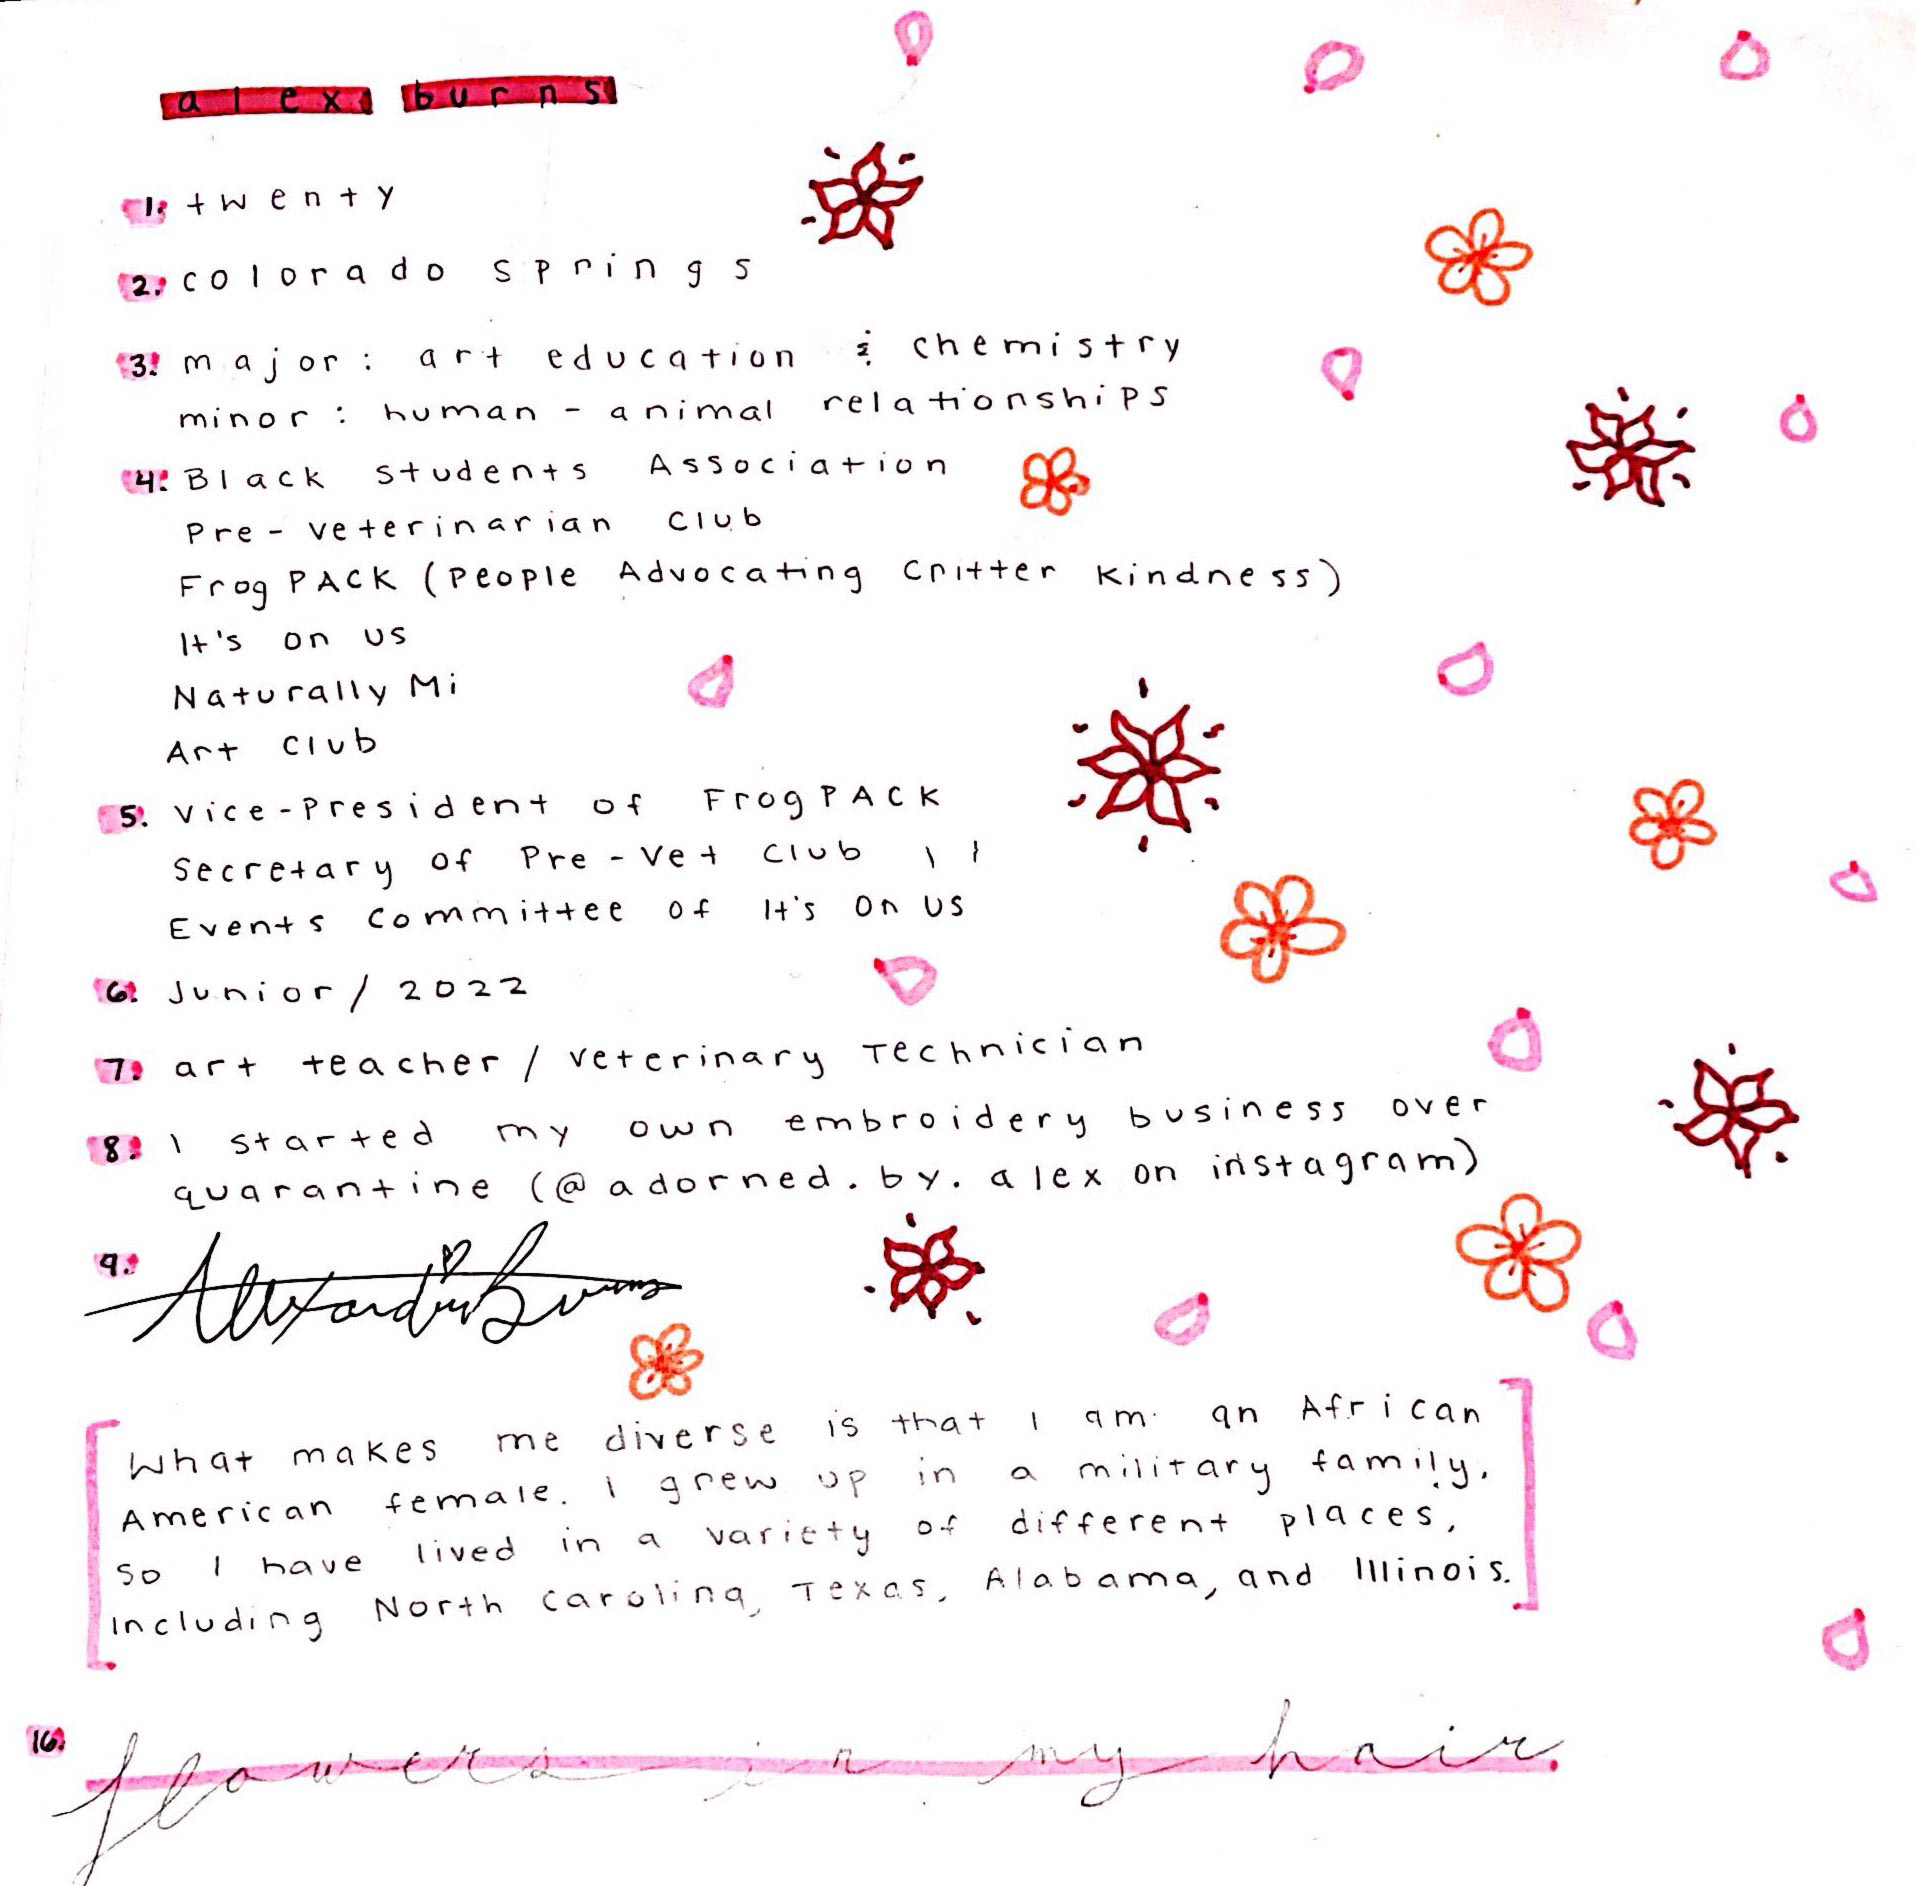 alex burns
1. twenty
2. colorado springs
3. major: art education & chemistry
minor: human-animal relationships
4. Black Students Association
Pre-veterinarian Club
Frog PACK (People Advocating Critter Kindness)
It's on us
Naturally Mi
Art Club
5. Vice-President of Frog PACK
Secretary of Pre-Vet Club
Events Committee of It's On Us
6. Junior/2022
7. art teacher/veterinary Technician
8. I started my own embroidery business over
quarantine (@adorned.by.alex on instagram)
9. Alexandria Burns
What makes me diverse is that I am an African
American female. I grew up in a military family,
so I have lived in a variety of different places,
Including North Carolina, Texas, Alabama, and Illinois.
10. flowers in my hair